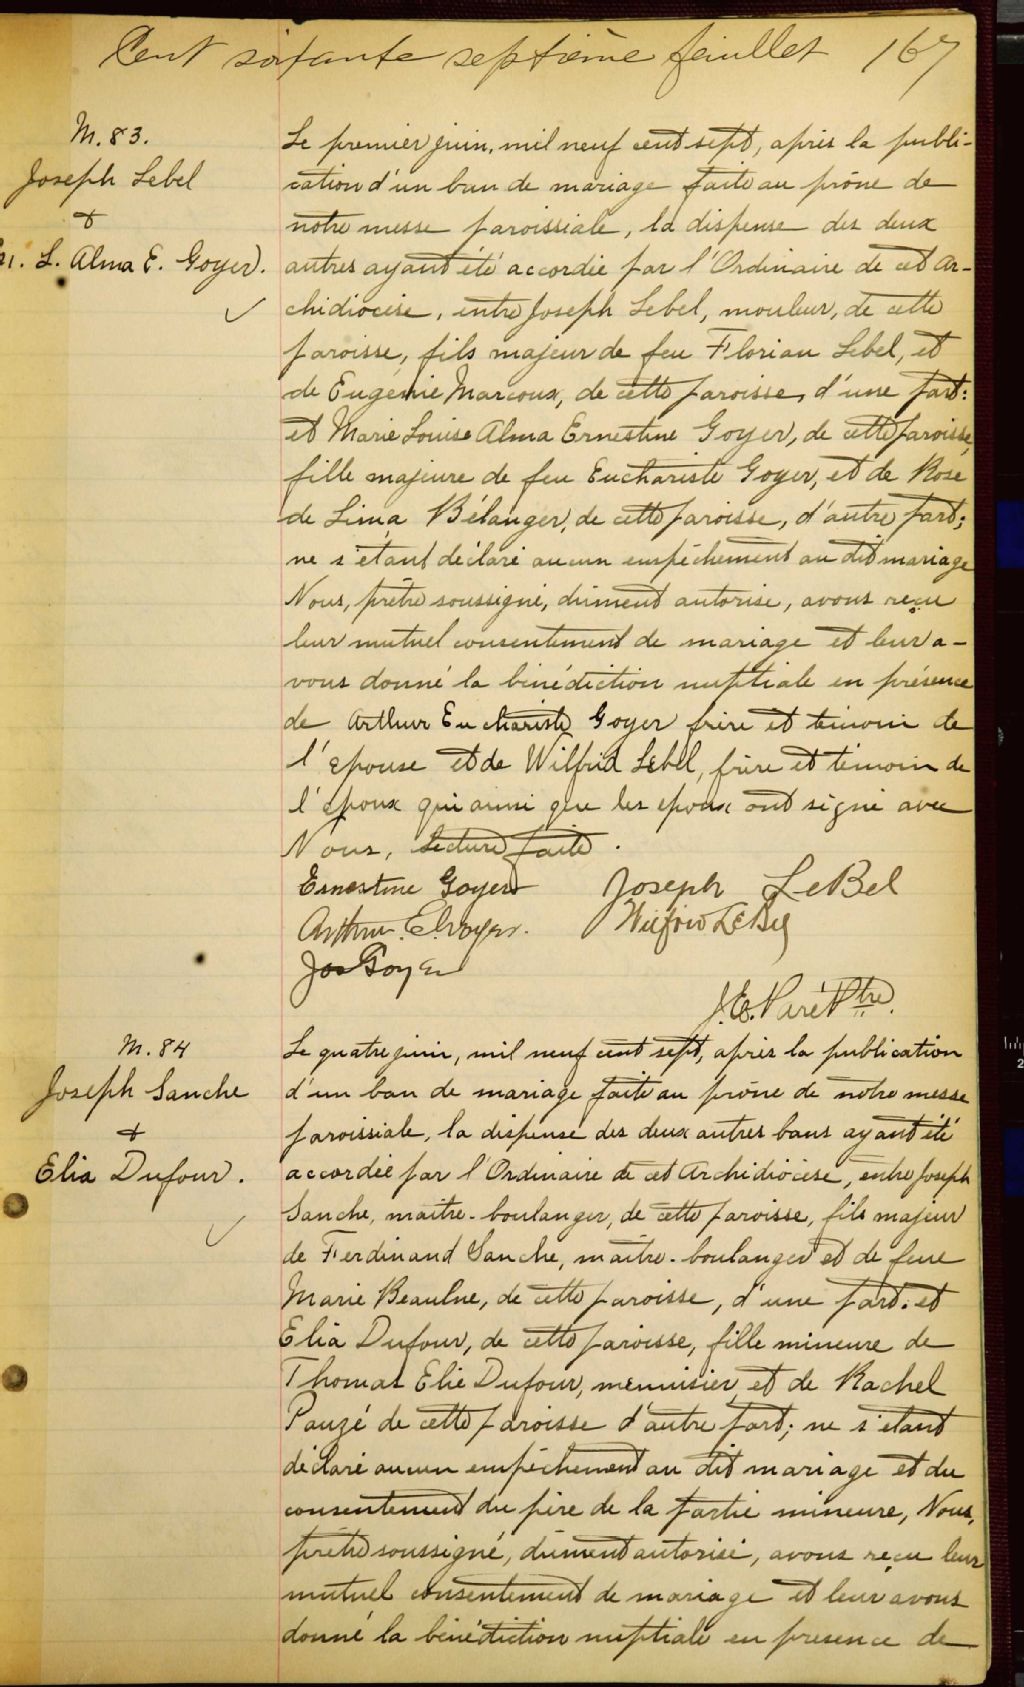 Cent soixante septième feuillet 167
M. 83.
Joseph Lebel
&
M. L. Alma E. Goyer.
Le premier juin, mil neuf cent sept, après la publi-
cation d'un ban de mariage faite au prône de
notre messe paroissiale, la dispense des deux
autres ayant été accordée par l'Ordinaire de cet Ar-
chidiocèse, entre Joseph Lebel, mouleur, de cette
paroisse, fils majeur de feu Florian Lebel, et
de Eugénie Marcoux, de cette paroisse, d'une part:
et Marie Louise Alma Ernestine Goyer, de cette paroisse,
fille majeure de feu Euchariste Goyer, et de Rose
de Lima Bélanger, de cette paroisse, d'autre part;
ne s'étant déclaré aucun empêchement au dit mariage
Nous, prêtre soussigné, dûment autorisé, avons reçu
leur mutuel consentement de mariage et leur a-
vons donné la bénédiction nuptiale en présence
de Arthur Euchariste Goyer frère et témoin de
l'épouse et de Wilfrid Lebel, frère et témoin de
l'époux qui ainsi que les époux ont signé avec
Nous, lecture faite.
Ernestine Goyer Joseph LeBel
Arthur E. Goyer. Wilfrid LeBel
Jos Goyer
J. E. Paré Ptre.
M. 84
Joseph Sanche
&
Elia Dufour.
Le quatre juin, mil neuf cent sept, après la publication
d'un ban de mariage faite au prône de notre messe
paroissiale, la dispense des deux autres bans ayant été
accordée par l'Ordinaire de cet Archidiocèse, entre Joseph
Sanche, maître-boulanger, de cette paroisse, fils majeur
de Ferdinand Sanche, maître-boulanger et de feue
Marie Beaulne, de cette paroisse, d'une part. et
Elia Dufour, de cette paroisse, fille mineure de
Thomas Elie Dufour, menuisier, et de Rachel
Pauzé de cette paroisse d'autre part; ne s'étant
déclaré aucun empêchement au dit mariage et du
consentement du père de la partie mineure, Nous,
prêtre soussigné, dûment autorisé, avons reçu leur
mutuel consentement de mariage et leur avons
donné la bénédiction nuptiale en présence de